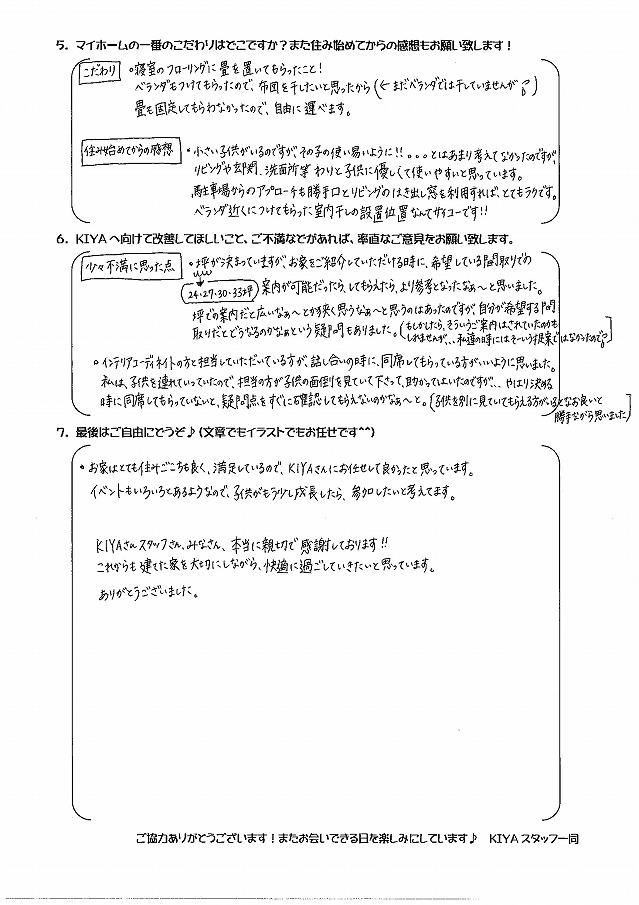 5. マイホームの一番のこだわりはどこですか？また住み始めてからの感想もお願い致します！
こだわり
・寝室のフローリングに畳を置いてもらったこと！
ベランダもつけてもらったので、布団を干したいと思ったから(←まだベランダでは干していませんが)
畳も固定してもらわなかったので、自由に運べます。
住み始めてからの感想
・小さい子供がいるのですが、その子の使い易いように!!。。。とはあまり考えてなかったのですが、
リビングや玄関、洗面所等 わりと子供に優しくて使いやすいと思っています。
駐車場からのアプローチも勝手口とリビングのはき出し窓を利用すれば、とてもラクです。
ベランダ近くにつけてもらった室内干しの設置位置なんてサイコーです!!
6. KIYAへ向けて改善してほしいこと、ご不満などがあれば、率直なご意見をお願い致します。
少々不満に思った点
・坪が決まっていますが、お家をご紹介していただける時に、希望している間取りでの
24・27・30・33坪
案内が可能だったら、してもらえたら、より参考となったなぁ〜と思いました。
坪での案内だと広いなぁ〜とか狭く思うなぁ〜と思うのはあったのですが、自分が希望する間
取りだとどうなるのかなぁという疑問もありました。
(もしかしたら、そういうご案内はされていたのかも
しれませんが、、、私達の時にはそういう提案ではなかったので)
・インテリアコーディネイトの方と担当していただいている方が、話し合いの時に、同席してもらっている方がいいように思いました。
私は、子供を連れていっていたので、担当の方が子供の面倒を見ていて下さって、助かってはいたのですが、、やはり決める
時に同席してもらっていないと、疑問点をすぐに確認してもらえないのかなぁ〜と。
(子供を別に見ていてもらえる方がいるとなお良いと
勝手ながら思いました)
7. 最後はご自由にどうぞ♪(文章でもイラストでもお任せです^^)
・お家はとても住みごこちも良く、満足しているので、KIYAさんにお任せして良かったと思っています。
イベントもいろいろとあるようなので、子供がもう少し成長したら、参加したいと考えてます。
KIYAさんスタッフさん、みなさん、本当に親切で感謝しております!!
これからも建てた家を大切にしながら、快適に過ごしていきたいと思っています。
ありがとうございました。
ご協力ありがとうございます！またお会いできる日を楽しみにしています♪ KIYAスタッフ一同